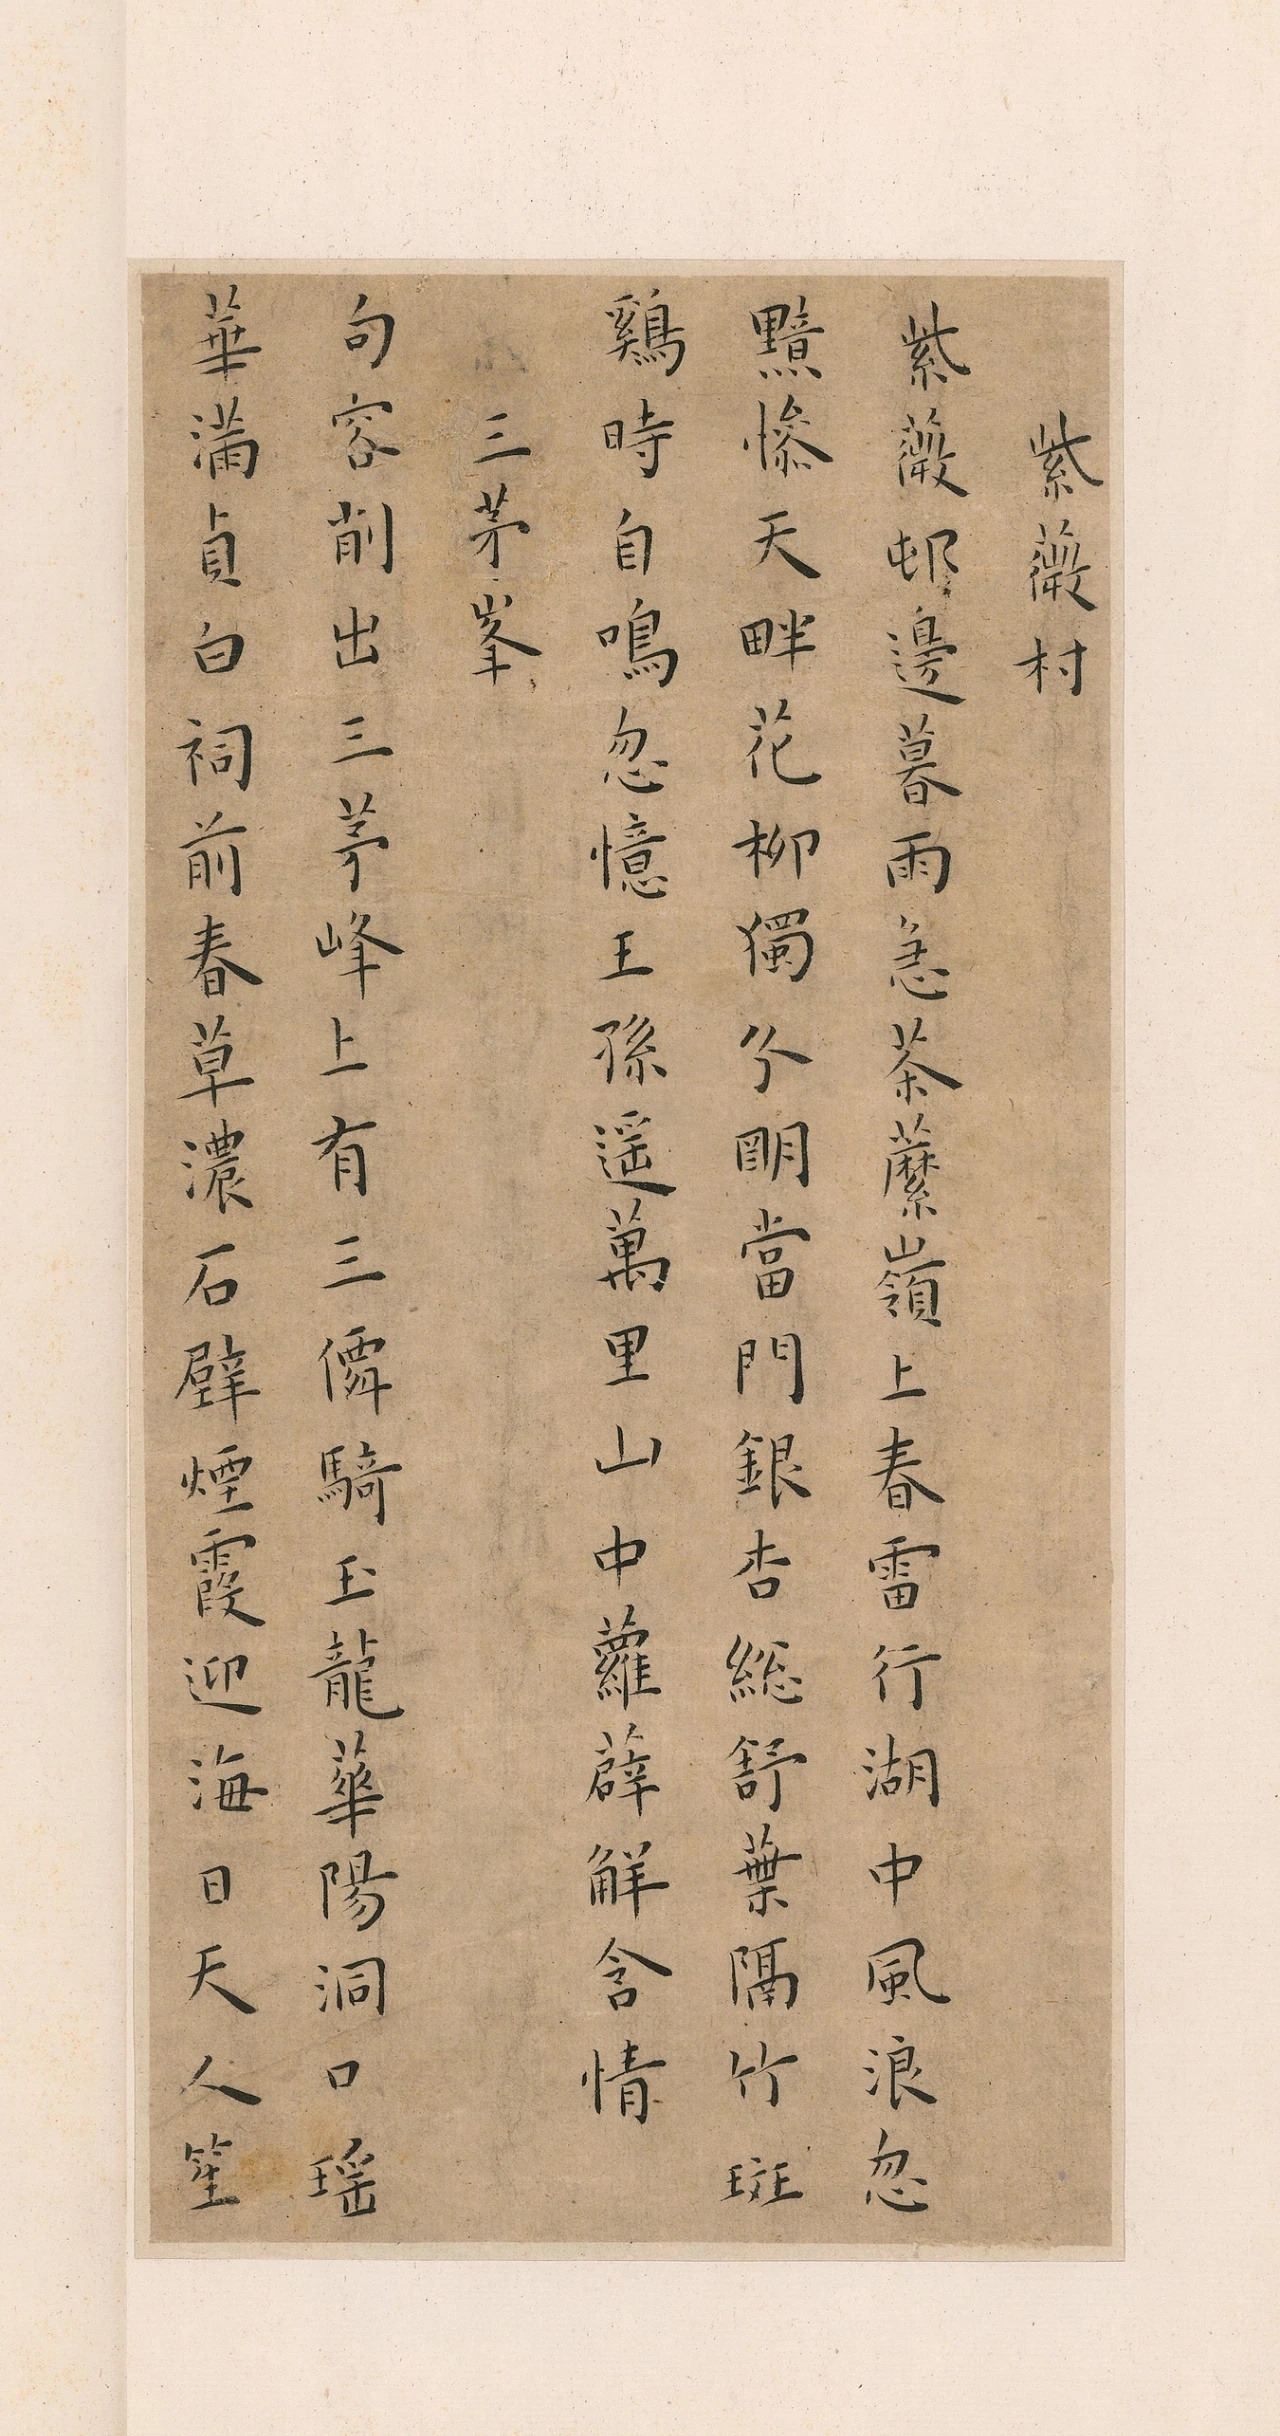 紫薇村
紫薇邨邊暮雨急茶蘪嶺上春雷行湖中風浪忽
黯慘天畔花柳獨分明當門銀杏総舒葉隔竹斑
鷄時自鳴忽憶王孫遥萬里山中蘿薜解含情
三茅峯
句容削出三茅峰上有三僊騎玉龍華陽洞口瑶
華滿貞白祠前春草濃石壁煙霞迎海日天人笙